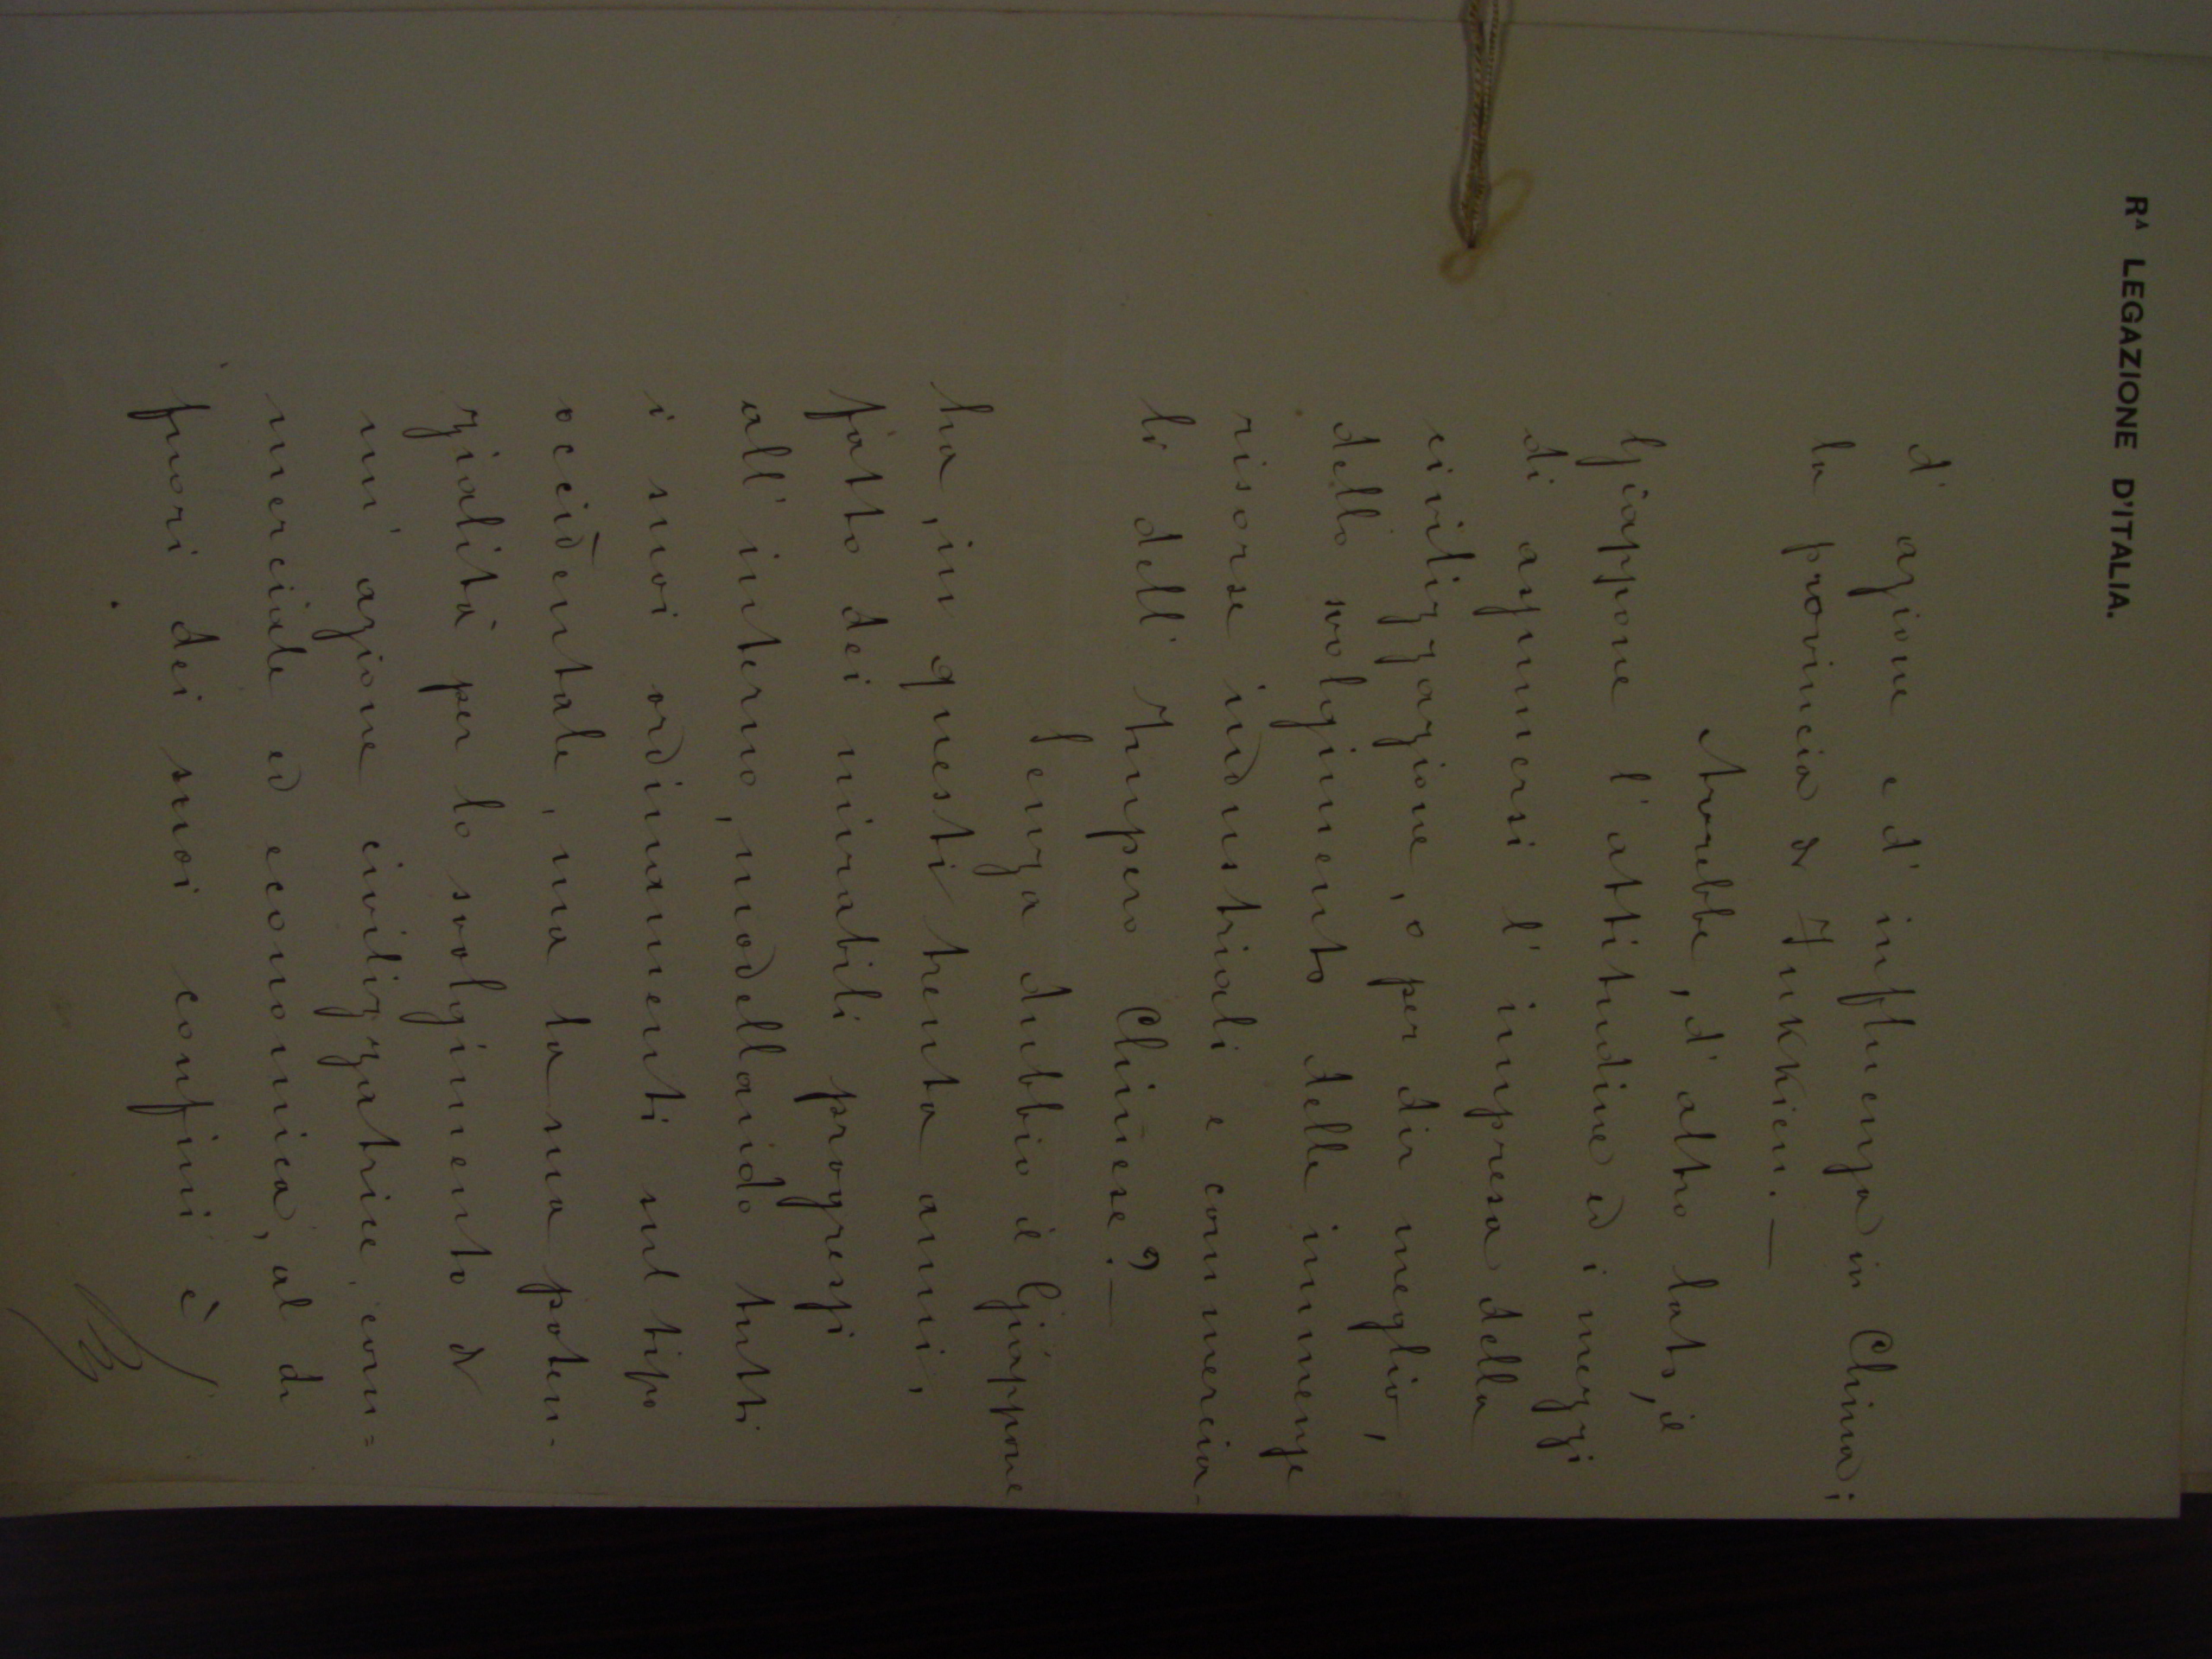 Rᴬ LEGAZIONE D'ITALIA.
d'azione e d'influenza in China;
la provincia di Fukkien. —
Avrebbe, d'altro lato, il
Giappone l'attitudine ed i mezzi
di assumersi l'impresa della
civilizzazione, o per dir meglio,
dello svolgimento delle immense
risorse industriali e commercia-
li dell'Impero Chinese? —
Senza dubbio il Giappone
ha, in questi trenta anni,
fatto dei mirabili progressi
all'interno, modellando tutti
i suoi ordinamenti sul tipo
occidentale, ma la sua poten-
zialità per lo svolgimento di
un'azione civilizzatrice, com=
merciale ed economica, al di
fuori dei suoi confini è